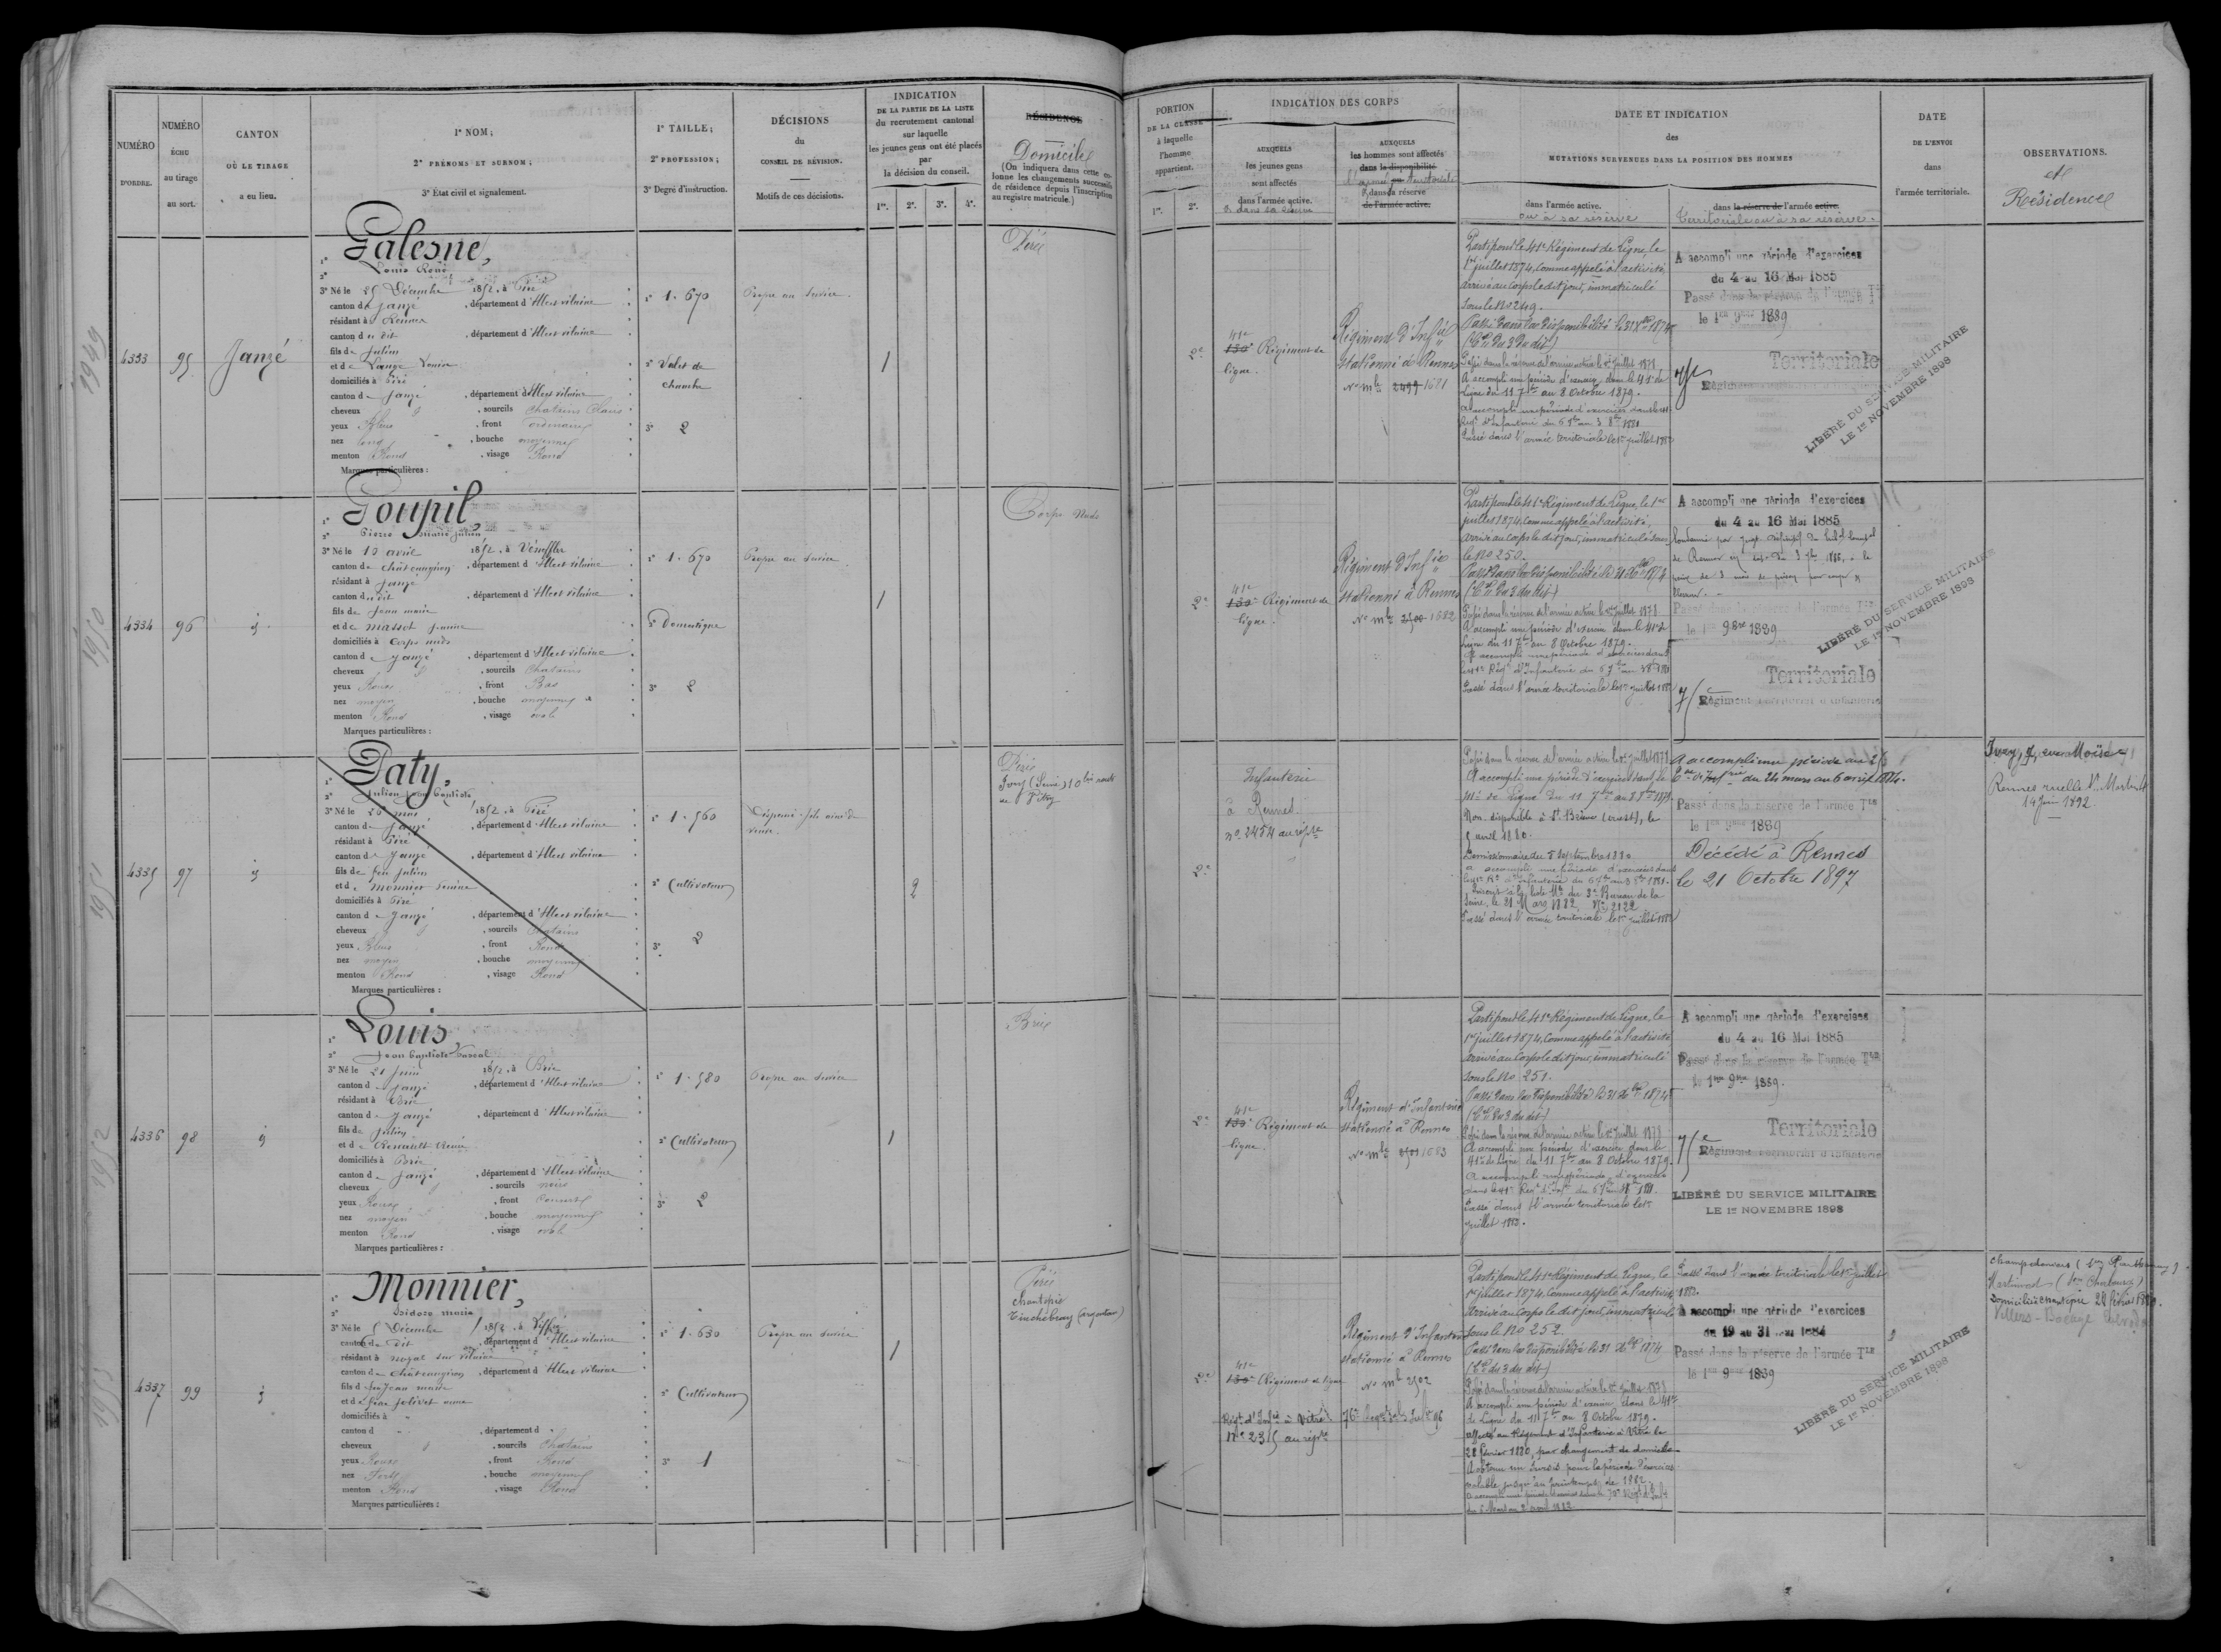 NUMÉRO
D'ORDRE.
NUMÉRO
ÉCHU
au tirage
au sort.
CANTON
OÙ LE TIRAGE
a eu lieu.
1° NOM;
2° PRÉNOMS ET SURNOM;
3° État civil et signalement.
1° TAILLE;
2° PROFESSION;
3° Degré d'instruction.
DÉCISIONS
du
CONSEIL DE RÉVISION.
Motifs de ces décisions.
INDICATION
DE LA PARTIE DE LA LISTE
du recrutement cantonal
sur laquelle
les jeunes gens ont été placés
par
la décision du conseil.
1re. 2e. 3e. 4e.
RÉSIDENCE
Domicile
(On indiquera dans cette co-
lonne les changements successifs
de résidence depuis l'inscription
au registre matricule.)
4333
95
Janzé
1° Galesne,
2° Louis René
3° Né le 25 Décembre 1852, à Piré
canton de Janzé, département d'Ille et vilaine
résidant à Rennes
canton du dit, département d'Ille et vilaine
fils de Julien
et de Lange Louise
domiciliés à Piré
canton de Janzé, département d'Ille et vilaine
cheveux , sourcils Chatains Clairs
yeux Bleus, front ordinaire
nez long, bouche moyenne
menton Rond, visage Rond
Marques particulières :
1° 1.670
2° Valet de
chambre
3° 2
Propre au service.
1
Piré
4334
96
1° Goupil,
2° Pierre marie julien
3° Né le 10 avril 1852, à Vénèfles
canton de Châteaugiron, département d'Ille et vilaine
résidant à Janzé
canton du dit, département d'Ille et vilaine
fils de Jean marie
et de Massot jeanne
domiciliés à Corps nuds
canton de Janzé, département d'Ille et vilaine
cheveux , sourcils Chatains
yeux Roux, front Bas
nez moyen, bouche moyenne
menton Rond, visage oval
Marques particulières :
1° 1.670
2° Domestique
3° 2
Propre au service.
1
Corps Nuds
4335
97
1° Paty,
2° Julien Jean Baptiste
3° Né le 26 mai 1852, à Piré
canton de Janzé, département d'Ille et vilaine
résidant à Piré
canton de Janzé, département d'Ille et vilaine
fils de feu Julien
et de Monnier
domiciliés à Piré
canton de Janzé, département d'Ille et vilaine
cheveux , sourcils Chatains
yeux Bleus, front Rond
nez moyen, bouche moyenne
menton Rond, visage Rond
Marques particulières :
1° 1.560
2° Cultivateur
3° 2
Dispensé. fils ainé de
veuve.
2
Piré
Ivry (Seine) 10 bis route
de Vitry
4336
98
1° Louis
2° Jean baptiste Pascal
3° Né le 21 Juin 1852, à Brie
canton de Janzé, département d'Ille et vilaine
résidant à Brie
canton de Janzé, département d'Ille et vilaine
fils de Julien
et de Renault
domiciliés à Brie
canton de Janzé, département d'Ille et vilaine
cheveux , sourcils noirs
yeux Roux, front Couvert
nez moyen, bouche moyenne
menton Rond, visage oval
Marques particulières :
1° 1.580
2° Cultivateur
3° 2
Propre au service
1
Brie
4337
99
1° Monnier,
2° Isidore marie
3° Né le 5 Décembre 1852, à Piffré
canton du dit, département d'Ille et vilaine
résidant à noyal sur vilaine
canton de Châteaugiron, département d'Ille et vilaine
fils de feu Jean marie
et de feue jolivet anne
domiciliés à
canton d , département d
cheveux , sourcils Chatains
yeux Roux, front Rond
nez Fort, bouche moyenne
menton Rond, visage Rond
Marques particulières :
1° 1.630
2° Cultivateur
3° 1
Propre au service
1
Piré
Chantepie
Tinchebray (argentan)
1949
1950
1951
1952
1953
PORTION
DE LA CLASSE
à laquelle
l'homme
appartient.
1re. 2e.
INDICATION DES CORPS
AUXQUELS
les jeunes gens
sont affectés
dans l'armée active.
et dans sa réserve
AUXQUELS
les hommes sont affectés
dans la disponibilité
l'armée ou territoriale
dans la réserve
de l'armée active.
DATE ET INDICATION
des
MUTATIONS SURVENUES DANS LA POSITION DES HOMMES
dans l'armée active.
ou à sa réserve
dans la réserve de l'armée active.
Territoriale ou à sa réserve.
DATE
DE L'ENVOI
dans
l'armée territoriale.
OBSERVATIONS.
et
Résidence
2e
41e
130e Régiment de
ligne.
Régiment d'Infie
stationné à Rennes
No mle 2499 1681
Parti pour le 41e Régiment de Ligne, le
1er juillet 1874, comme appelé à l'activité
arrivé au corps le dit jour, immatriculé
sous le No 249.
Passé dans la disponibilité le 31 Xbre 1874
(Con du 3 du dit)
Passé dans la réserve de l'armée active le 1er juillet 1878
A accompli une période d'exercice dans le 41e de
Ligne du 11 7bre au 8 Octobre 1879.
Passé dans l'armée territoriale le 1er juillet 1882
A accompli une période d'exercices
du 4 au 16 Mai 1885
Passé dans la réserve de l'armée Tle
le 1er 9bre 1889
Territoriale
LIBÉRÉ DU SERVICE MILITAIRE
LE 1er NOVEMBRE 1898
2e
41e
130e Régiment de
ligne.
Régiment d'Infie
stationné à Rennes
No mle 2500 1682
Parti pour le 41e Régiment de Ligne, le 1er
juillet 1874, comme appelé à l'activité,
arrivé au corps le dit jour, immatriculé sous
le No 250.
Passé dans la disponibilité le 31 Xbre 1874
(Con du 3 du dit)
Passé dans la réserve de l'armée active le 1er juillet 1878
A accompli une période d'exercice dans le 41e de
Ligne du 11 7bre au 8 Octobre 1879.
A accompli une période d'exercices dans
le 41e Régt d'Infanterie du 6 7bre au 3 8bre 1881
Passé dans l'armée territoriale le 1er juillet 1882
A accompli une période d'exercices
du 4 au 16 Mai 1885
Passé dans la réserve de l'armée Tle
le 1er 9bre 1889
Territoriale
Régiment Territorial d'Infanterie
LIBÉRÉ DU SERVICE MILITAIRE
LE 1er NOVEMBRE 1898
2e
Infanterie
à Rennes.
no 2454 au répre
Passé dans la réserve de l'armée active le 1er juillet 1878
A accompli une période d'exercices dans le
41e de Ligne du 11 7bre au 8 8bre 1879.
Non disponible à St Brieuc (ouest), le
5 avril 1880.
Démissionnaire du 5 Septembre 1880
a accompli une période d'exercices dans
le 41e Rt d'Infanterie du 6 7bre au 3 8bre 1881.
Seine, le 21 Mars 1882, No 2122
Passé dans l'armée territoriale le 1er juillet 1882
A accompli une période au
du 24 mars au 6 avril 1884.
Passé dans la réserve de l'armée Tle
le 1er 9bre 1889
Décédé à Rennes
le 21 Octobre 1897
Ivry, 7, rue Moïse
Rennes ruelle St Martin
14 juin 1892
2e
41e
130e Régiment de
ligne.
Régiment d'Infanterie
stationné à Rennes
No mle 2501 1683
Parti pour le 41e Régiment de Ligne, le
1er juillet 1874, comme appelé à l'activité
arrivé au corps le dit jour, immatriculé
sous le No 251.
Passé dans la disponibilité le 31 Xbre 1874
(Con du 3 du dit)
Passé dans la réserve de l'armée active le 1er juillet 1878
A accompli une période d'exercice dans le
41e de Ligne du 11 7bre au 8 Octobre 1879.
A accompli une période d'exercices
dans le 41e Régt d'Infie du 6 7bre au 3 8bre 1881.
Passé dans l'armée territoriale le 1er
juillet 1882.
A accompli une période d'exercices
du 4 au 16 Mai 1885
Passé dans la réserve de l'armée Tle
le 1er 9bre 1889.
Territoriale
Régiment Territorial d'Infanterie
LIBÉRÉ DU SERVICE MILITAIRE
LE 1er NOVEMBRE 1898
2e
41e
130e Régiment de ligne
Régt d'Infie à Vitré
No 2315 au répre
Régiment d'Infanterie
stationné à Rennes
No mle 2502
Parti pour le 41e Régiment de Ligne, le
1er juillet 1874, comme appelé à l'activité
arrivé au corps le dit jour, immatriculé
sous le No 252.
Passé dans la disponibilité le 31 Xbre 1874
(Con du 3 du dit)
Passé dans la réserve de l'armée active le 1er juillet 1878
A accompli une période d'exercice dans le 41e
de Ligne du 11 7bre au 8 Octobre 1879.
affecté au Régiment d'Infanterie à Vitré le
28 février 1880, par changement de domicile
A obtenu un sursis pour la période d'exercices
valable jusqu'au printemps de 1882.
Passé dans l'armée territoriale le 1er juillet
1882.
A accompli une période d'exercices
du 19 au 31 mai 1884
Passé dans la réserve de l'armée Tle
le 1er 9bre 1889
LIBÉRÉ DU SERVICE MILITAIRE
LE 1er NOVEMBRE 1898
Domicilié Chantepie 28 février 1880.
Villers-Bocage Calvados